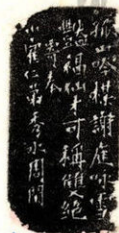 孤山吟楳謝庭咏雪
豔福仙才可稱雙絶
奉
小甯仁弟秀水周閑